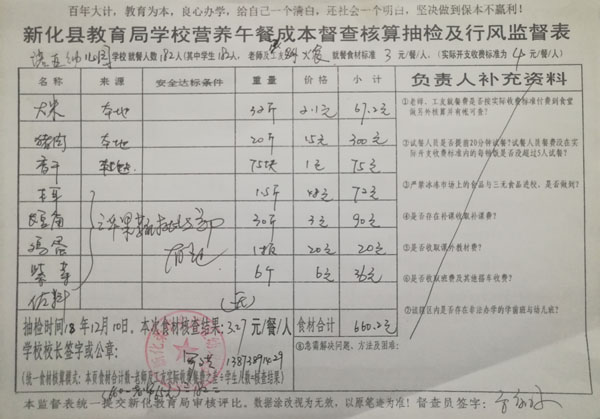 百年大计，教育为本，良心办学，给自己一个清白，还社会一个明白，坚决做到保本不赢利！
新化县教育局学校营养午餐成本督查核算抽检及行风监督表
幼儿园学校就餐人数：182人(其中学生182人，老师及工友 就餐食材标准 3元/餐/人。(实际开支收费标准为4元/餐/人)
名称 来源 安全达标条件 重量 价格 小计 负责人补充资料
大米 本地 32斤 2.1元 67.2元
①老师、工友就餐费是否按实际收费标准付费到食堂
做另外核算并有帐可查？
猪肉 本地 20斤 15元 300元
②试餐人员是否提前20分钟试餐？试餐人员餐费没在实
际开支收费标准内的每桶饭是否没超过5人试餐？
香干 75块 1元 75元
木耳 1.5斤 48元 72元
③严禁冰冻市场上的食品与三无食品进校，是否做到？
30斤 3元 90元
④是否存在补课收取补课费？
鸡蛋 1板 20元 20元
⑤是否收取课外教材费？
6斤 6元 36元
⑥是否收取班费及其他搭车收费？
佐料
⑦该辖区内是否存在非法办学的学前班与幼儿班？
抽检时间18年12月10日。本次食材核查结果：3.27元/餐/人 食材合计 660.2元
⑧急需解决问题、方法及困难：
学校校长签字或公章：
13873891429
(统一食材核算模式：本页食材合计数-老师及工友实际收费餐费之差÷学生人数=核查结果)
本监督表统一提交新化教育局审核评比。数据涂改视为无效，以原笔迹为准！督查员签字：